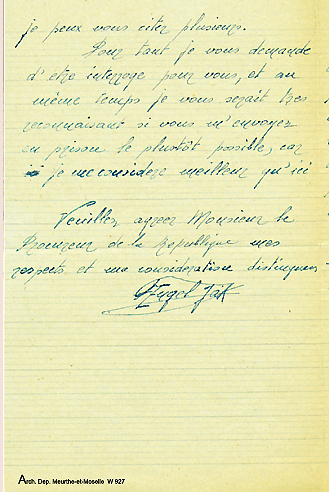 je peux vous citer plusieurs.
Pour tant je vous demande
d'etre interroge pour vous, et au
même temps je vous serait tres
reconnaissant si vous m'envoyer
en prison le plustôt possible, car
je me considere meilleur qu'ici
Veuillez agreer Monsieur le
Procureur de la Republique mes
respects et ma consideration distingues
Arch. Dep. Meurthe-et-Moselle W 927